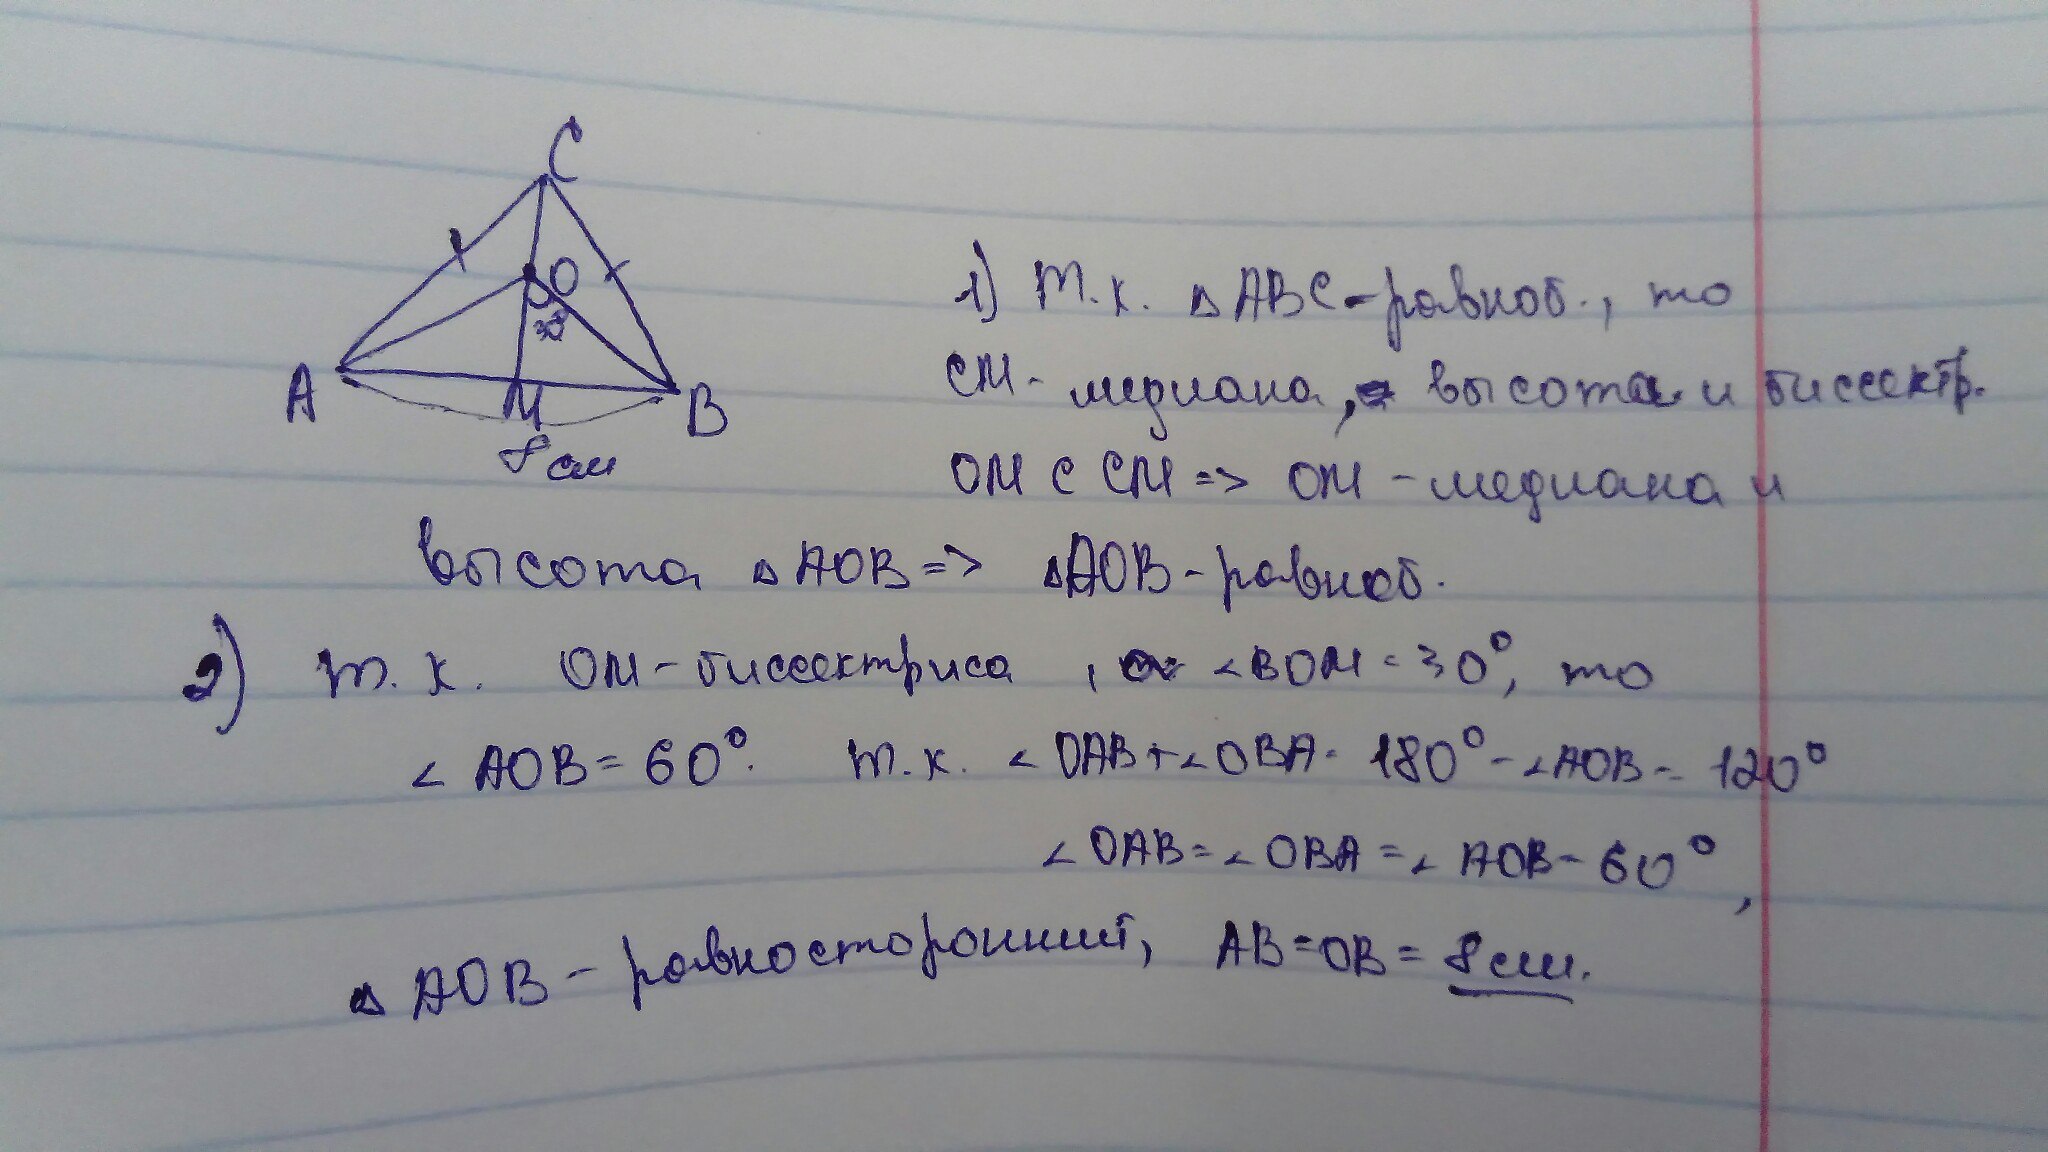 C
O
30°
A
M
B
8 см
1) Т.к. △ABC - равноб., то
CM - медиана, высота и биссектр.
OM ⊂ CM => OM - медиана и
высота △AOB => △AOB - равноб.
2) Т.к. OM - биссектриса, ∠BOM = 30°, то
∠AOB = 60°. Т.к. ∠OAB + ∠OBA = 180° - ∠AOB = 120°
∠OAB = ∠OBA = ∠AOB = 60°,
△AOB - равносторонний, AB = OB = 8 см.